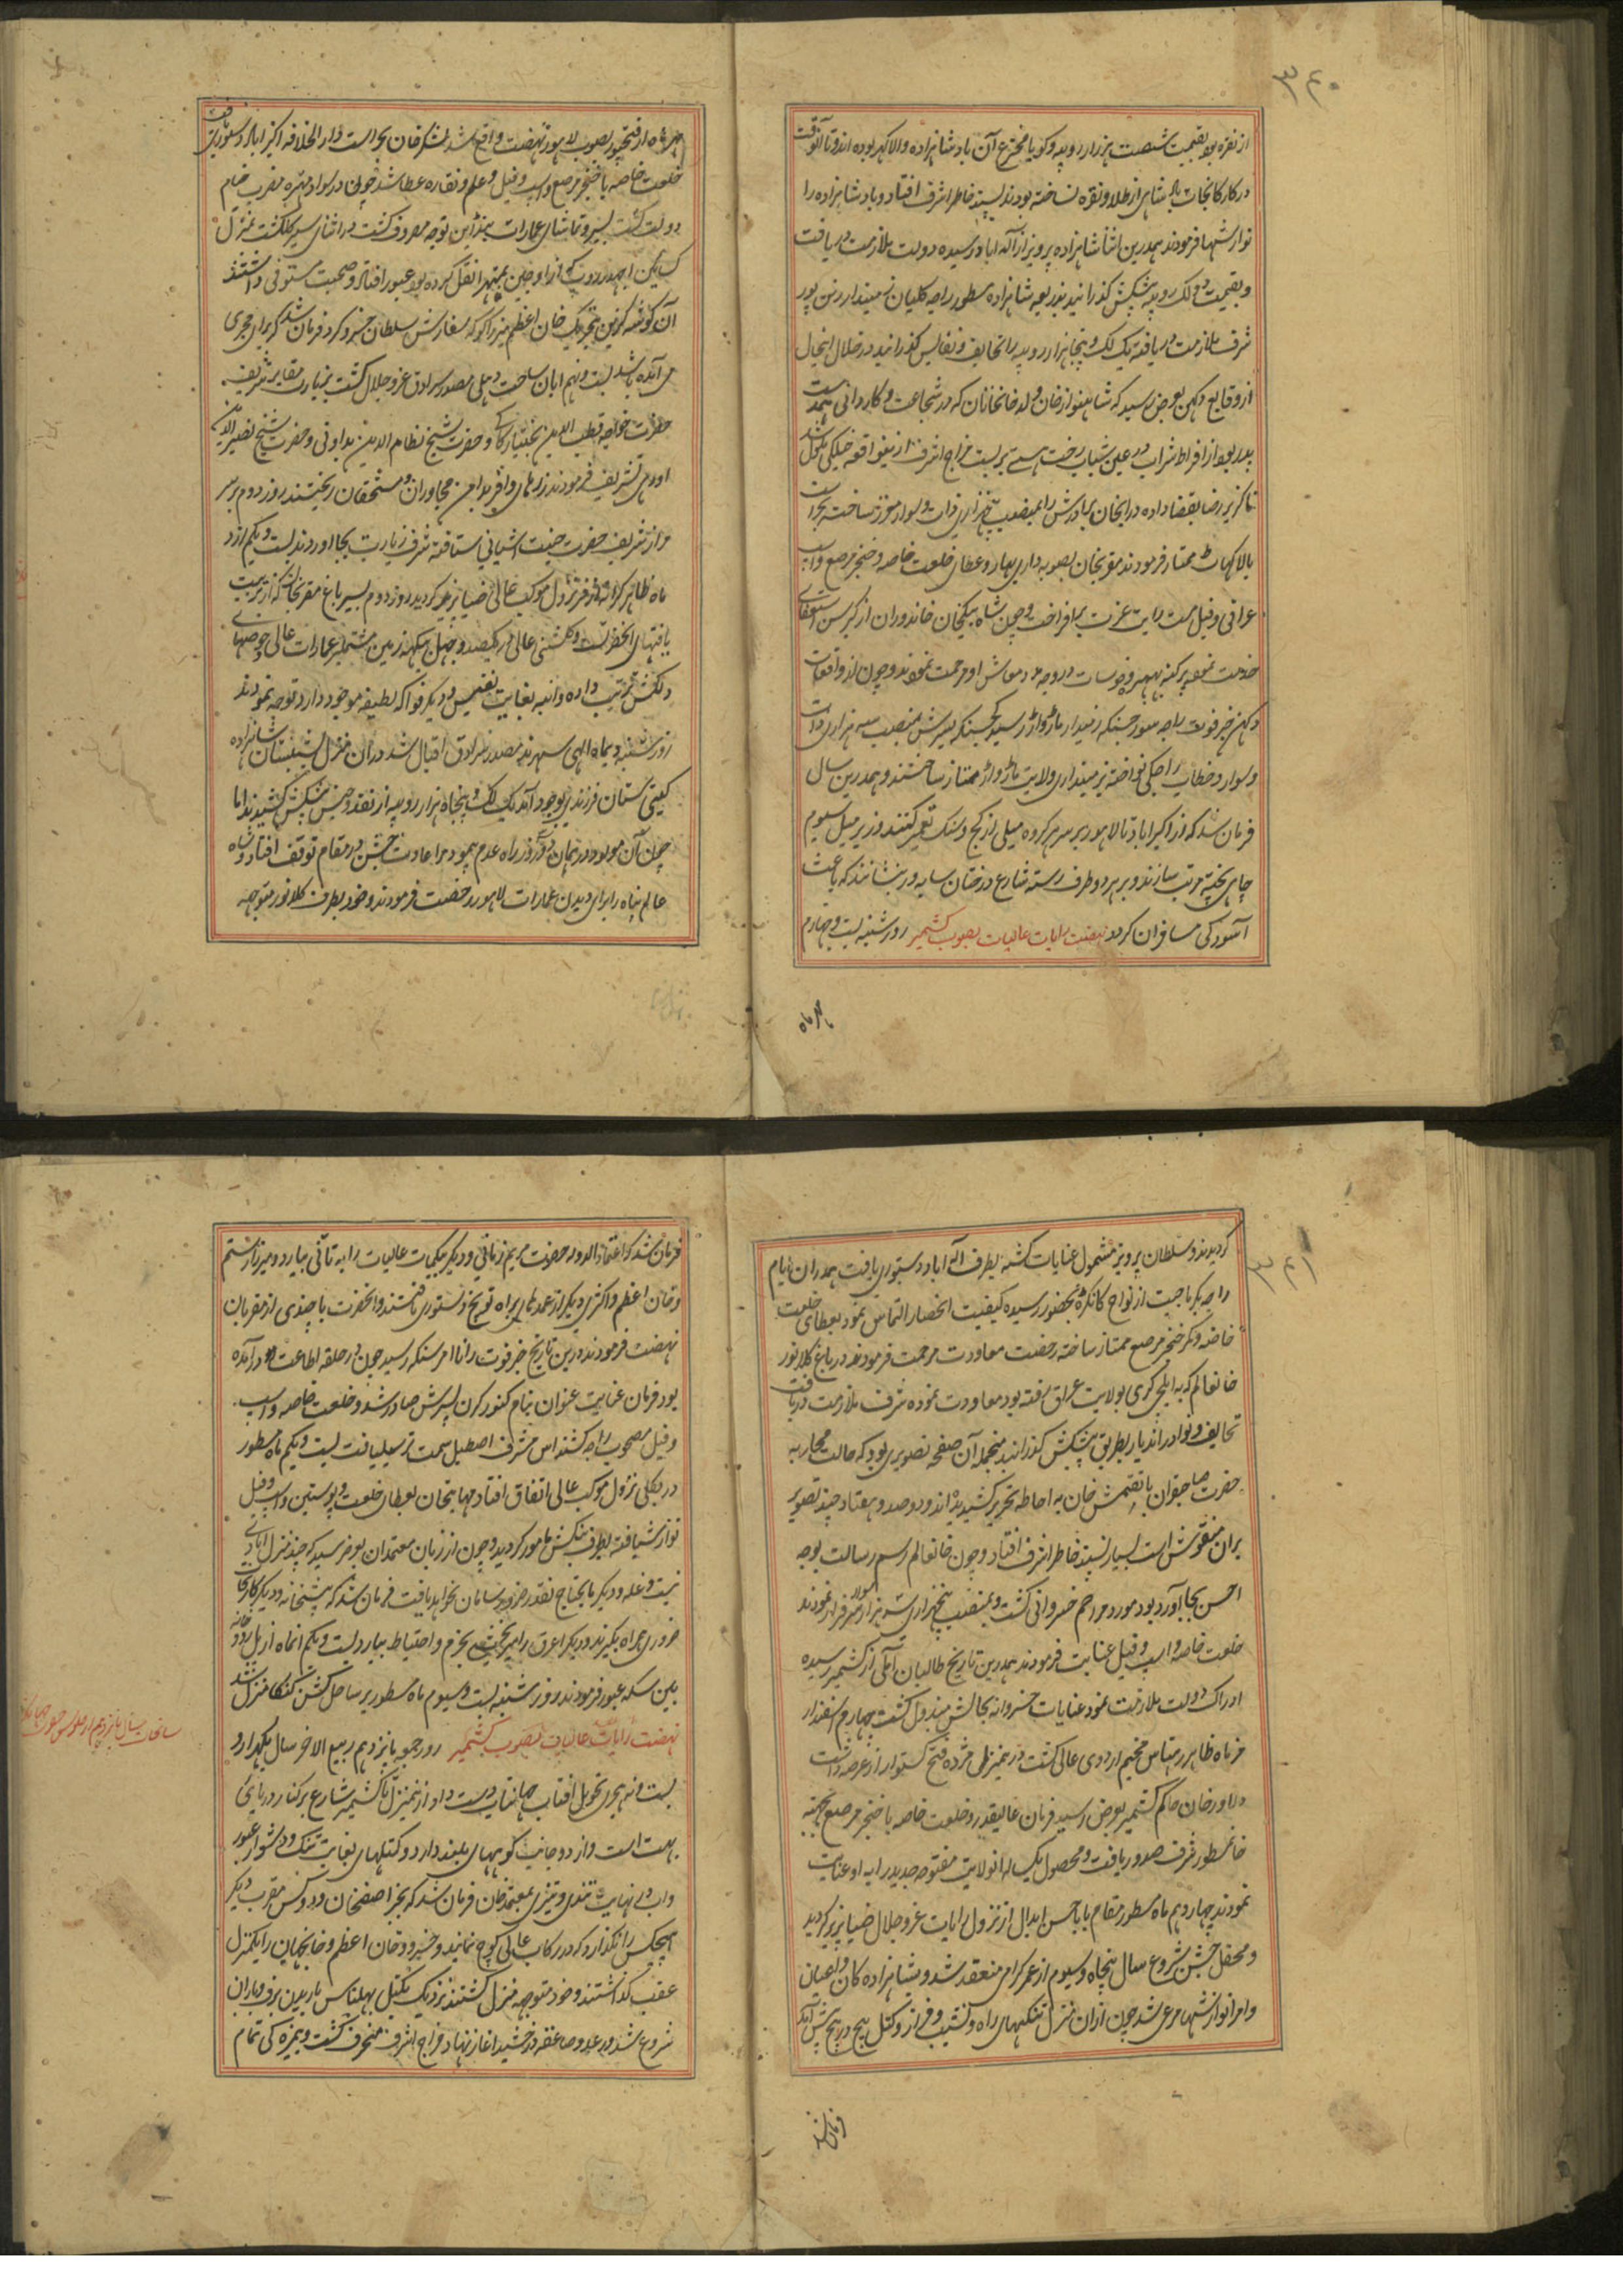 ۳۴۰
از نقره بود بقیمت شصت هزار روپیه و گویا مخترع آن بادشاهزاده والا گهر بوده اند و تا آنوقت
در کارخانجات بادشاهی از طلا و نقره نساخته بودند پسند خاطر اشرف افتاد و بادشاهزاده را
نوازشها فرمودند همدرین اثنا شاهزاده پرویز از اله اباد رسیده دولت ملازمت دریافت
و بقیمت دو لک روپیه پیشکش گذرانید بذریعه شاهزاده مسطور راجه کلیان زمیندار رتن پور
شرف ملازمت دریافته یک لک و پنجاه هزار روپیه را تحایف و نفایس گذرانید در خلال اینحال
از وقایع دکهن بعرض رسید که شاهنواز خان ولد خانخانان که در شجاعت و کاردانی همدست
پدر بود از افراط شراب در عین شباب رخت هستی بربست مزاج اشرف ازین واقعه خیلی ملول شد
ناگزیر رضا بقضا داده داراب خان برادرش را بمنصب پنجهزاری ذات و سوار معزز ساخته بحراست
بالا گهات ممتاز فرمودند مقربخان بصوبه داری بهار و عطای خلعت خاصه و خنجر مرصع و اسپ
عراقی و فیل مست رایت عزت برافراخت و چون شاه بیگخان خاندوران از کبر سن استعفای
خدمت نمود پرگنه بهیره و خوشاب در وجه مدد معاش او مرحمت نمودند و چون از واقعات
دکهن خبر فوت راجه سورجسنگه زمیندار مارواڑ رسید گجسنگه پسرش بمنصب سه هزاری ذات
و سوار و خطاب راجگی نواخته بزمینداری ولایت مارواڑ ممتاز ساختند و همدرین سال
فرمان شد که از اکبراباد تا لاهور بر سر هر کروه میلی از گچ و سنگ تعمیر کنند و زیر میل سیوم
چاهی پخته مرتب سازند و بر هر دو طرف رسته شارع درختان سایه ور بنشانند که باعث
آسودگی مسافران گردد نهضت رایات عالیات بصوب کشمیر روز شنبه بیست و چهارم
مهر ماه
مهر ماه از فتحپور بصوب لاهور نهضت واقع شد لشکرخان بحراست دارالخلافه اکبراباد دستوری یافت
خلعت خاصه با خنجر مرصع و اسپ و فیل و علم و نقاره عطا شد چون در سواد متهره مضرب خیام
دولت گشت بسیر و تماشای عمارات بندرابن توجه مصروف گشت در اثنای سیر گلگشت بمنزل
گسائین اجهدروپ که از اوجین بمتهرا نقل کرده بود عبور افتاد و صحبت مستوفی داشتند
آن گوشه گزین بتحریک خان اعظم میرزا کوکه سفارش سلطان خسرو کرد فرمان شد که برای مجری
می آمده باشد بیست و نهم ابان ساحت دهلی مصدر سرادق عز و جلال گشت بزیارت مقابر شریف
حضرت خواجه قطب الدین بختیار کاکی و حضرت شیخ نظام الدین بداونی و حضرت شیخ نصیر الدین
اودهی تشریف فرمودند زرهای وافر بدامن مجاوران و مستحقان ریختند روز دوم بر سر
مزار شریف حضرت جنت اشیانی شتافته شرف زیارت بجا اوردند بیست و یکم ازر
ماه ظاهر کرانه از فر نزول موکب عالی ضیاپذیر گردید روز دوم بسیر باغ مقربخان که از تربیت
یافتهای انحضرت و گلشنی عالی در یکصد و چهل بیگهه زمین مشتملبر عمارات عالی و حوضهای
دلکش ترتیب داده و انبه بغایت نفیس و دیگر فواکه لطیفه موجود دارد توجه نمودند
روز شنبه دیماه الهی سهرند مصدر سرادق اقبال شد دران منزل بشبستان شاهزاده
گیتی ستان فرزندی بوجود آمد یک لک و پنجاه هزار روپیه از نقد و جنس پیشکش کشیدند اما
چون آن مولود در همان روز در راه عدم پیمود مراعات جشن در مقام توقف افتاد و شاه
عالم پناه را برای دیدن عمارات لاهور رخصت فرمودند و خود بطرف کلانور متوجه
۳۴۱
گردیدند و سلطان پرویز مشمول عنایات گشته بطرف اله اباد دستوری یافت همدران ایام
راجه بکرماجیت از نواح کانگڑه بحضور رسیده کیفیت انحصار التماس نمود بعطای خلعت
خاصه و کمر خنجر مرصع ممتاز ساخته رخصت معاودت مرحمت فرمودند در باغ کلانور
خانعالم که به ایلچی گری بولایت عراق رفته بود معاودت نموده شرف ملازمت دریافت
تحایف و نوادر اندیار بطریق پیشکش گذرانید منجمله آن صفحه تصویری بود که حالت محاربه
حضرت صاحبقران با تقتمش خان به احاطه تحریر کشیده اند و دوصد و هفتاد چند تصویر
بران منقوش است بسیار پسند خاطر اشرف افتاد و چون خانعالم رسم رسالت بوجه
احسن بجا آورد بود مورد مراحم خسروانی گشت و بمنصب پنجهزاری سه هزار سوار سرفراز نمودند
خلعت خاصه و اسپ و فیل عنایت فرمودند همدرین تاریخ طالبان آملی از کشمیر رسیده
ادراک دولت ملازمت نمود عنایات خسروانه بحالش مبذول گشت چهارم اسفندار
مز ماه ظاهر رهتاس مخیم اردوی عالی گشت در همنزل مژده فتح کشتوار از عرضه داشت
دلاور خان حاکم کشمیر بعرض رسید فرمان عالیقدر و خلعت خاصه با خنجر مرصع بجهته
خانمسطور شرف صدور یافت و محصول یکساله انولایت مفتوحه جدید را به او عنایت
نمودند چهاردهم ماه مسطور مقام بابا حسن ابدال از نزول رایات عز و جلال ضیاپذیر گردید
و محفل جشن شروع سال پنجاه و سیوم از عمر گرامی منعقد شد و شاهزاده کان و اعیان
و امرا نوازشها مرعی شد چون ازان منزل تنگیهای راه و نشیب و فراز و کتل پیچ در پیچ پیش آمد
فرمان شد
فرمان شد که اعتماد الدوله حضرت مریم زمانی و دیگر بیگمات عالیات را به تانی بیارد و میرزا رستم
و خان اعظم و اکثری دیگر از عمدهای براه تفریخ دستوری یافتند و انحضرت با چندی از مقربان
نهضت فرمودند درین تاریخ خبر فوت رانا امرسنگه رسید چون در حلقه اطاعت در آمده
بود فرمان عنایت عنوان بنام کنور کرن پسرش صادر شد و خلعت خاصه و اسپ
و فیل مصحوب راجه کشنداس مشرف اصطبل سمت ترسیل یافت بیست و یکم ماه مسطور
در پکلی نزول موکب عالی اتفاق افتاد مهابتخان بعطای خلعت و پوستین و اسپ و فیل
نوازش یافته بطرف بنگش مامور گردید و چون از زبان معتمدان بعرض رسید که چند منزل ابادی
نیست و غله و دیگر مایحتاج بقدر ضرور سامان نخواهد یافت فرمان شد که پیشخانه و دیگر کارخانجات
ضروری همراه بگیرند و دیگر اعرق را میربخشی بحزم و احتیاط بیارد بیست و یکم انماه از پل رودخانه
نین سکه عبور فرمودند روز شنبه بیست و سیوم ماه مسطور بر ساحل کشن گنگا منزل شد
نهضت رایات عالیات بصوب کشمیر روز جمعه پانزدهم ربیع الاخر سال یکهزار و
بیست و نه هجری تحویل افتاب جهانتاب دست داد از همنزل تا کشمیر شارع بر کنار دریای
بهت است و از دو جانب کوههای بلند دارد و کتلهای بغایت تنگ و دشوار عبور
و اب در نهایت تندی و تیزی بمعتمدخان فرمان شد که بجز اصفخان و دو کس مقرب دیگر
هیچکس را نگذارد که در رکاب عالی کوچ نمایند و خسرو و خان اعظم و خانجهان را یکمنزل
عقب گذاشتند و خود متوجه منزل گشتند نزدیک بکتل بهلباس باریدن برف و باران
شروع شد و رعد و صاعقه درخشید اغاز نهاد مزاج اشرف منحرف گشت و بیمزه گی تمام
سانحات سال پانزدهم از جلوس